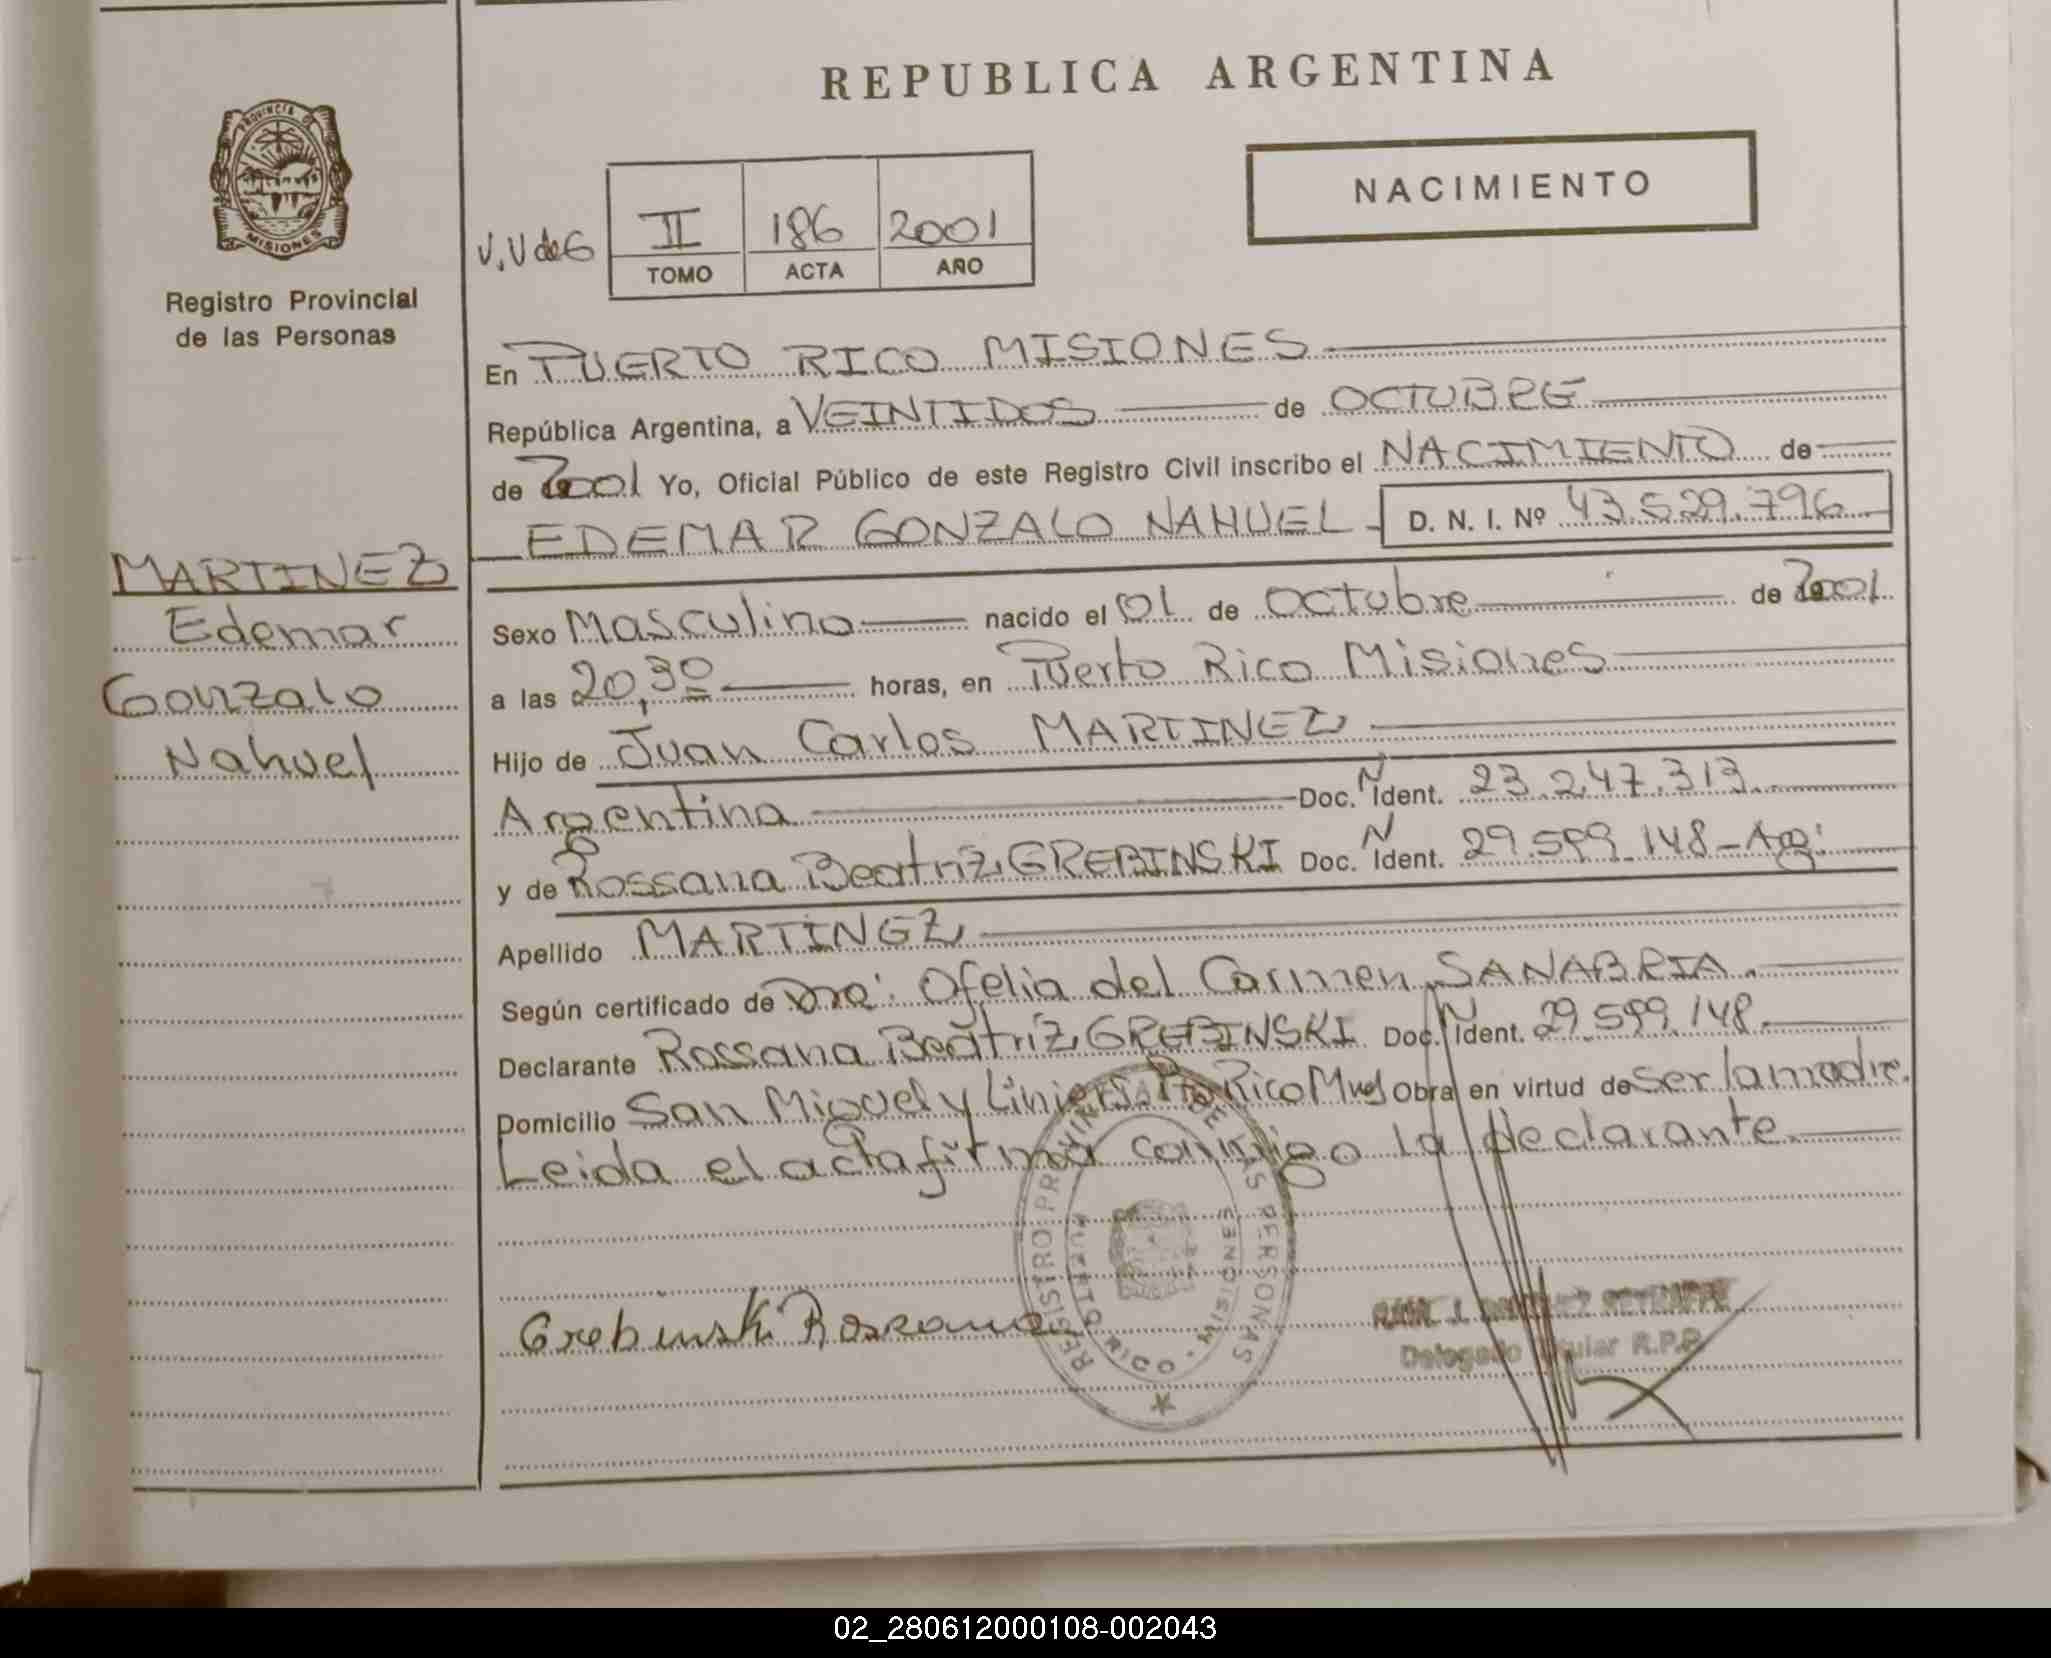 REPUBLICA ARGENTINA
PROVINCIA DE
MISIONES
Registro Provincial
de las Personas
NACIMIENTO
V.V de G
II 186 2001
TOMO ACTA AÑO
En PUERTO RICO MISIONES
República Argentina, a VEINTIDOS de OCTUBRE
de 2001 Yo, Oficial Público de este Registro Civil inscribo el NACIMIENTO de
EDEMAR GONZALO NAHUEL D. N. I. Nº 43.529.796
MARTINEZ
Edemar
Gonzalo
Nahuel
Sexo Masculino nacido el 01 de Octubre de 2001
a las 20,30 horas, en Puerto Rico Misiones
Hijo de Juan Carlos MARTINEZ
Argentina Doc. N Ident. 23.247.313
y de Rossana Beatriz GREBINSKI Doc. N Ident. 29.599.148-Arg:
Apellido MARTINEZ
Según certificado de Dra: Ofelia del Carmen SANABRIA.
Declarante Rossana Beatriz GREBINSKI Doc. N Ident. 29.599.148.
Domicilio San Miguel y Liniers Pto Rico Mnes Obra en virtud de ser la madre.
Leida el acta firma conmigo la declarante
REGISTRO PROVINCIAL DE LAS PERSONAS
PUERTO RICO - MISIONES
Grebinski Rossana
Delegado Titular R.P.P.
02_280612000108-002043